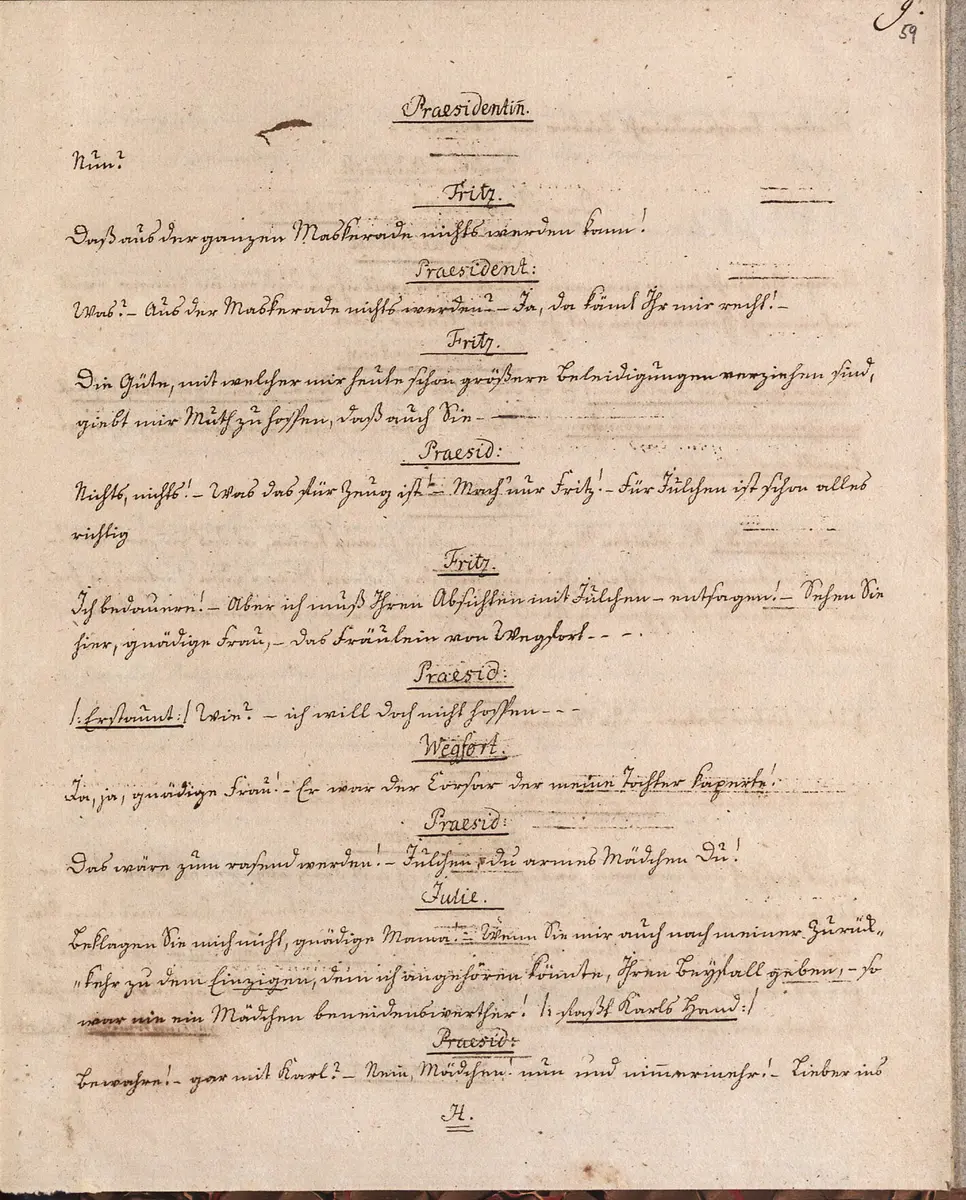 9.
59
Praesidentin̄.
Nun?
Fritz.
Daß aus der ganzen Maskerade nichts werden kann!
Praesident:
Was? – Aus der Maskerade nichts werden? – Ja, da kämt Ihr mir recht! –
Fritz.
Die Güte, mit welcher mir heute schon größere Beleidigungen verziehen sind,
giebt mir Muth zu hoffen, daß auch Sie –
Praesid:
Nichts, nichts! – Was das für Zeug ist! – Mach' nur Fritz! – Für Julchen ist schon alles
richtig
Fritz.
Ich bedauere! – Aber ich muß Ihren Absichten mit Julchen – entsagen! – Sehen Sie
hier, gnädige Frau, – das Fräulein von Wegfort - - -.
Praesid:
/: Erstaunt :/ Wie? – ich will doch nicht hoffen - - -
Wegfort.
Ja, ja, gnädige Frau! – Er war der Corsar der meine Tochter kaperte!
Praesid:
Das wäre zum rasend werden! – Julchen, du armes Mädchen Du!
Julie.
Beklagen Sie mich nicht, gnädige Mama! – Wenn Sie mir auch nach meiner Zurük„
„kehr zu dem Einzigen, dem ich angehören könnte, Ihren Beyfall geben, – so
war nie ein Mädchen beneidenswerther! /: faßt Karls Hand :/
Praesid:
Bewahre! – gar mit Karl? – Nein, Mädchen! nun und nim̄ermehr! – Lieber ins
H.